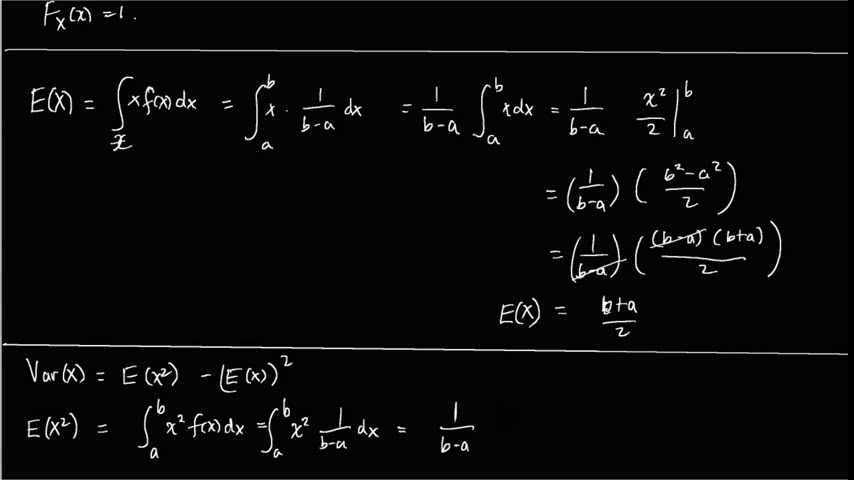 F_X(x) = 1.
E(X) = ∫_𝒳 x f(x) dx = ∫_a^b x · 1/(b-a) dx = 1/(b-a) ∫_a^b x dx = 1/(b-a) x²/2 |_a^b
= (1/(b-a)) ((b²-a²)/2)
= (1/(b-a)) ((b-a)(b+a)/2)
E(X) = (b+a)/2
Var(X) = E(X²) - (E(X))²
E(X²) = ∫_a^b x² f(x) dx = ∫_a^b x² 1/(b-a) dx = 1/(b-a)